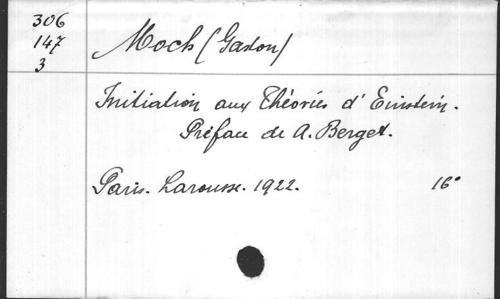 306
147
3
Moch (Gaston)
Initiation aux Théories d'Einstein.
Préface de A. Berget.
Paris. Larousse. 1922. 16°